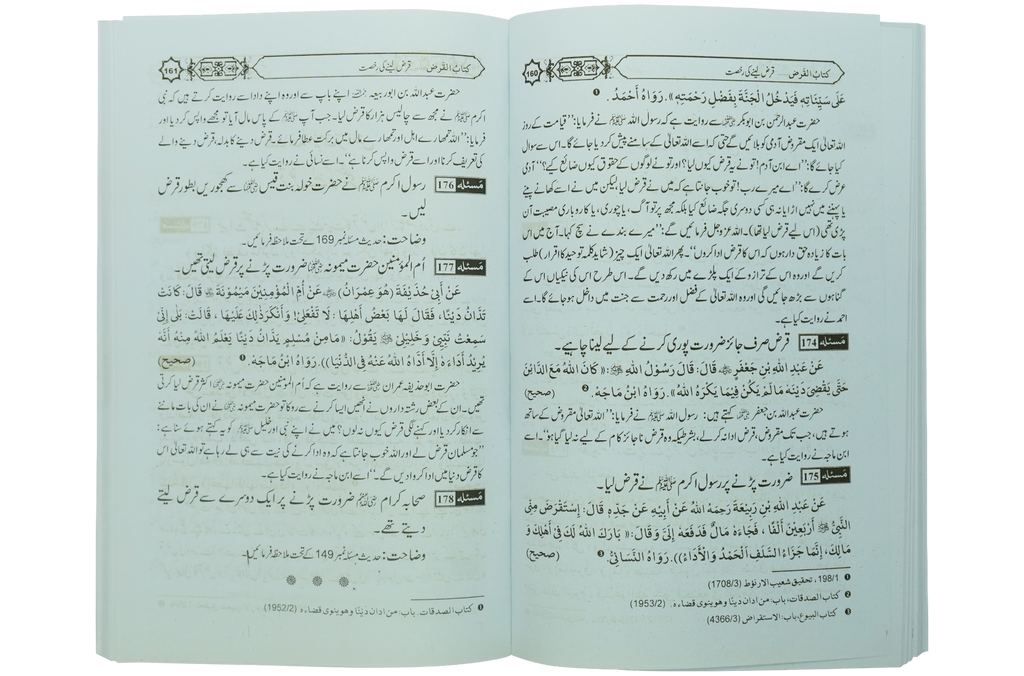 160 كتاب القرض ..... قرض لینے کی رخصت
عَلٰى سَيِّئَاتِهٖ فَيَدْخُلُ الْجَنَّةَ بِفَضْلِ رَحْمَتِهٖ)). رَوَاهُ أَحْمَدُ. ❶
حضرت عبدالرحمٰن بن ابوبکر رضی اللہ عنہما سے روایت ہے کہ رسول اللہ ﷺ نے فرمایا: ’’قیامت کے روز
اللہ تعالیٰ ایک مقروض آدمی کو بلائیں گے حتی کہ اسے اللہ تعالیٰ کے سامنے پیش کر دیا جائے گا۔ اس سے سوال
کیا جائے گا: ’’اے ابن آدم! تو نے یہ قرض کیوں لیا؟ اور تو نے لوگوں کے حقوق کیوں ضائع کیے؟‘‘ آدمی
عرض کرے گا: ’’اے میرے رب! تو خوب جانتا ہے کہ میں نے قرض لیا، لیکن میں نے اسے کھانے پینے
یا پہننے میں نہیں اڑایا نہ ہی کسی دوسری جگہ ضائع کیا بلکہ مجھ پر تو آگ، یا چوری، یا کاروباری مصیبت آن
پڑی تھی (اس لیے قرض لیا تھا)۔ اللہ عزوجل فرمائیں گے: ’’میرے بندے نے سچ کہا۔ آج میں اس
بات کا زیادہ حق دار ہوں کہ اس کا قرض ادا کروں‘‘۔ پھر اللہ تعالیٰ ایک چیز (شاید کلمہ توحید کا اقرار) طلب
کریں گے اور وہ اس کے ترازو کے ایک پلڑے میں رکھ دیں گے۔ اس طرح اس کی نیکیاں اس کے
گناہوں سے بڑھ جائیں گی اور وہ اللہ تعالیٰ کے فضل اور رحمت سے جنت میں داخل ہو جائے گا۔ اسے
احمد نے روایت کیا ہے۔
مَسئله 174 قرض صرف جائز ضرورت پوری کرنے کے لیے لینا چاہیے۔
عَنْ عَبْدِ اللهِ بْنِ جَعْفَرٍ رضی اللہ عنہ قَالَ: قَالَ رَسُوْلُ اللهِ ﷺ: ((كَانَ اللهُ مَعَ الدَّائِنِ
حَتّٰى يَقْضِيَ دَيْنَهٗ مَالَمْ يَكُنْ فِيْمَا يَكْرَهُ اللهُ)). رَوَاهُ ابْنُ مَاجَهْ. ❷ (صحيح)
حضرت عبداللہ بن جعفر رضی اللہ عنہما کہتے ہیں: رسول اللہ ﷺ نے فرمایا: ’’اللہ تعالیٰ مقروض کے ساتھ
ہوتے ہیں، جب تک مقروض، قرض ادا نہ کر لے، بشرطیکہ وہ قرض ناجائز کام کے لیے نہ لیا گیا ہو‘‘۔ اسے
ابن ماجہ نے روایت کیا ہے۔
مَسئله 175 ضرورت پڑنے پر رسول اکرم ﷺ نے قرض لیا۔
عَنْ عَبْدِ اللهِ بْنِ رَبِيْعَةَ رَحِمَهُ اللهُ عَنْ أَبِيْهِ عَنْ جَدِّهٖ قَالَ: إِسْتَقْرَضَ مِنِّي
النَّبِيُّ ﷺ أَرْبَعِيْنَ أَلْفًا، فَجَاءَهٗ مَالٌ فَدَفَعَهٗ إِلَيَّ وَقَالَ: ((بَارَكَ اللهُ لَكَ فِيْ أَهْلِكَ وَ
مَالِكَ، إِنَّمَا جَزَاءُ السَّلَفِ الْحَمْدُ وَالْأَدَاءُ)). رَوَاهُ النَّسَائِيُّ. ❸ (صحيح)
❶ 198/1، تحقیق شعیب الارنؤط (1708/3)
❷ كتاب الصدقات، باب: من ادان دينًا وهوينوى قضاءه. (1953/2)
❸ كتاب البيوع، باب: الاستقراض (4366/3)
161 كتاب القرض ..... قرض لینے کی رخصت
حضرت عبداللہ بن ابو ربیعہ رحمہ اللہ اپنے باپ سے اور وہ اپنے دادا سے روایت کرتے ہیں کہ نبی
اکرم ﷺ نے مجھ سے چالیس ہزار کا قرض لیا۔ جب آپ ﷺ کے پاس مال آیا تو مجھے واپس کر دیا اور
فرمایا: ’’اللہ تمہارے اہل اور تمہارے مال میں برکت عطا فرمائے۔ قرض دینے کا بدلہ، قرض دینے والے
کی تعریف کرنا اور اسے قرض واپس کرنا ہے‘‘۔ اسے نسائی نے روایت کیا ہے۔
مَسئله 176 رسول اکرم ﷺ نے حضرت خولہ بنت قیس رضی اللہ عنہا سے کھجوریں بطور قرض
لیں۔
وضاحت: حدیث مسئلہ نمبر 169 کے تحت ملاحظہ فرمائیں۔
مَسئله 177 اُم المؤمنین حضرت میمونہ رضی اللہ عنہا ضرورت پڑنے پر قرض لیتی تھیں۔
عَنْ أَبِيْ حُذَيْفَةَ (هُوَ عِمْرَانُ) عَنْ أُمِّ الْمُؤْمِنِيْنَ مَيْمُوْنَةَ رضی اللہ عنہا قَالَ: كَانَتْ
تَدَّانُ دَيْنًا، فَقَالَ لَهَا بَعْضُ أَهْلِهَا: لَا تَفْعَلِيْ! وَأَنْكَرَ ذٰلِكَ عَلَيْهَا، قَالَتْ: بَلٰى إِنِّيْ
سَمِعْتُ نَبِيِّيْ وَخَلِيْلِيْ ﷺ يَقُوْلُ: ((مَا مِنْ مُسْلِمٍ يَدَّانُ دَيْنًا يَعْلَمُ اللهُ مِنْهُ أَنَّهٗ
يُرِيْدُ أَدَاءَهٗ إِلَّا أَدَّاهُ اللهُ عَنْهُ فِي الدُّنْيَا)). رَوَاهُ ابْنُ مَاجَهْ. ❶ (صحيح)
حضرت ابو حذیفہ عمران رضی اللہ عنہ سے روایت ہے کہ اُم المؤمنین حضرت میمونہ رضی اللہ عنہا اکثر قرض لیا کرتی
تھیں۔ ان کے بعض رشتہ داروں نے انھیں ایسا کرنے سے روکا تو حضرت میمونہ رضی اللہ عنہا نے ان کی بات ماننے
سے انکار کر دیا اور کہنے لگی قرض کیوں نہ لوں؟ میں نے اپنے نبی اور خلیل ﷺ کو یہ کہتے ہوئے سنا ہے:
’’جو مسلمان قرض لے اور اللہ خوب جانتا ہے کہ وہ ادا کرنے کی نیت سے ہی لے رہا ہے تو اللہ تعالیٰ اس
کا قرض دنیا میں ادا کروا دیں گے۔‘‘ اسے ابن ماجہ نے روایت کیا ہے۔
مَسئله 178 صحابہ کرام رضی اللہ عنہم ضرورت پڑنے پر ایک دوسرے سے قرض لیتے
دیتے تھے۔
وضاحت: حدیث مسئلہ نمبر 149 کے تحت ملاحظہ فرمائیں۔
❶ كتاب الصدقات. باب: من ادان دينًا وهوينوى قضاءه (1952/2)